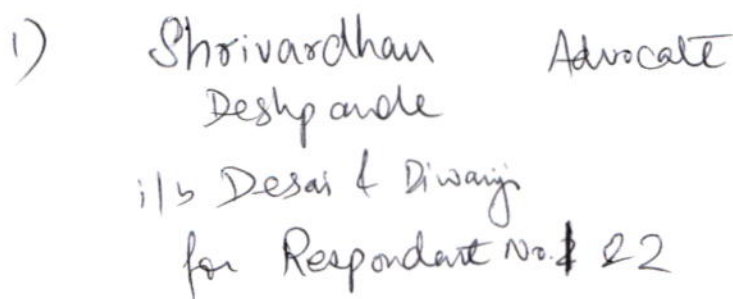 1) Shrivardhan Advocate
Deshpande
i/b Desai & Diwanji
for Respondent No. 22